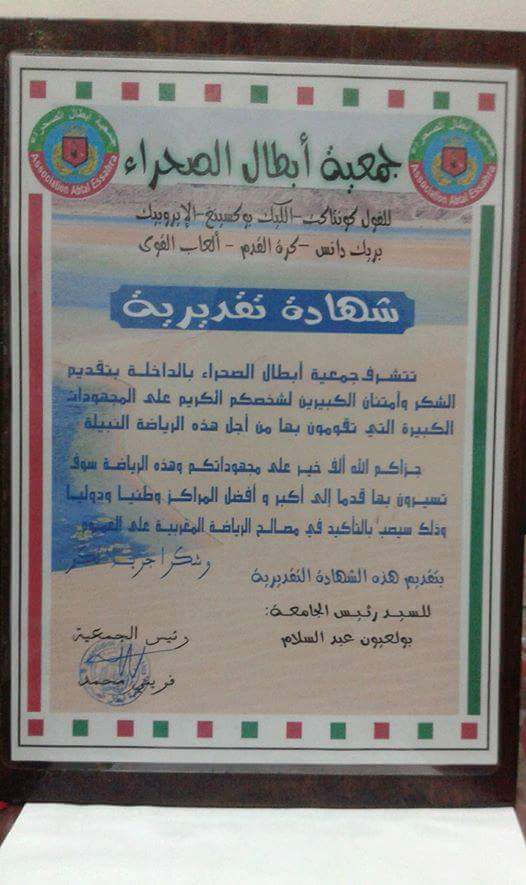 جمعية أبطال الصحراء
جمعية أبطال الصحراء
Association Abtal Essahra
جمعية أبطال الصحراء
Association Abtal Essahra
للفول كونتاكت-الكيك بوكسينغ-الإيروبيك
بريك دانس -كرة القدم - ألعاب القوى
شهادة تقديرية
تتشرف جمعية أبطال الصحراء بالداخلة بتقديم
الشكر وأمتنان الكبيرين لشخصكم الكريم على المجهودات
الكبيرة التي تقومون بها من أجل هذه الرياضة النبيلة
جزاكم الله ألف خير على مجهوداتكم وهذه الرياضة سوف
تسيرون بها قدما إلى أكبر و أفضل المراكز وطنيا ودوليا
وذلك سيصب بالتأكيد في مصالح الرياضة المغربية على العموم
وشكرا جزيلا
بتقديم هذه الشهادة التقديرية
للسيد رئيس الجامعة:
بولعيون عبد السلام
رئيس الجمعية
محمد